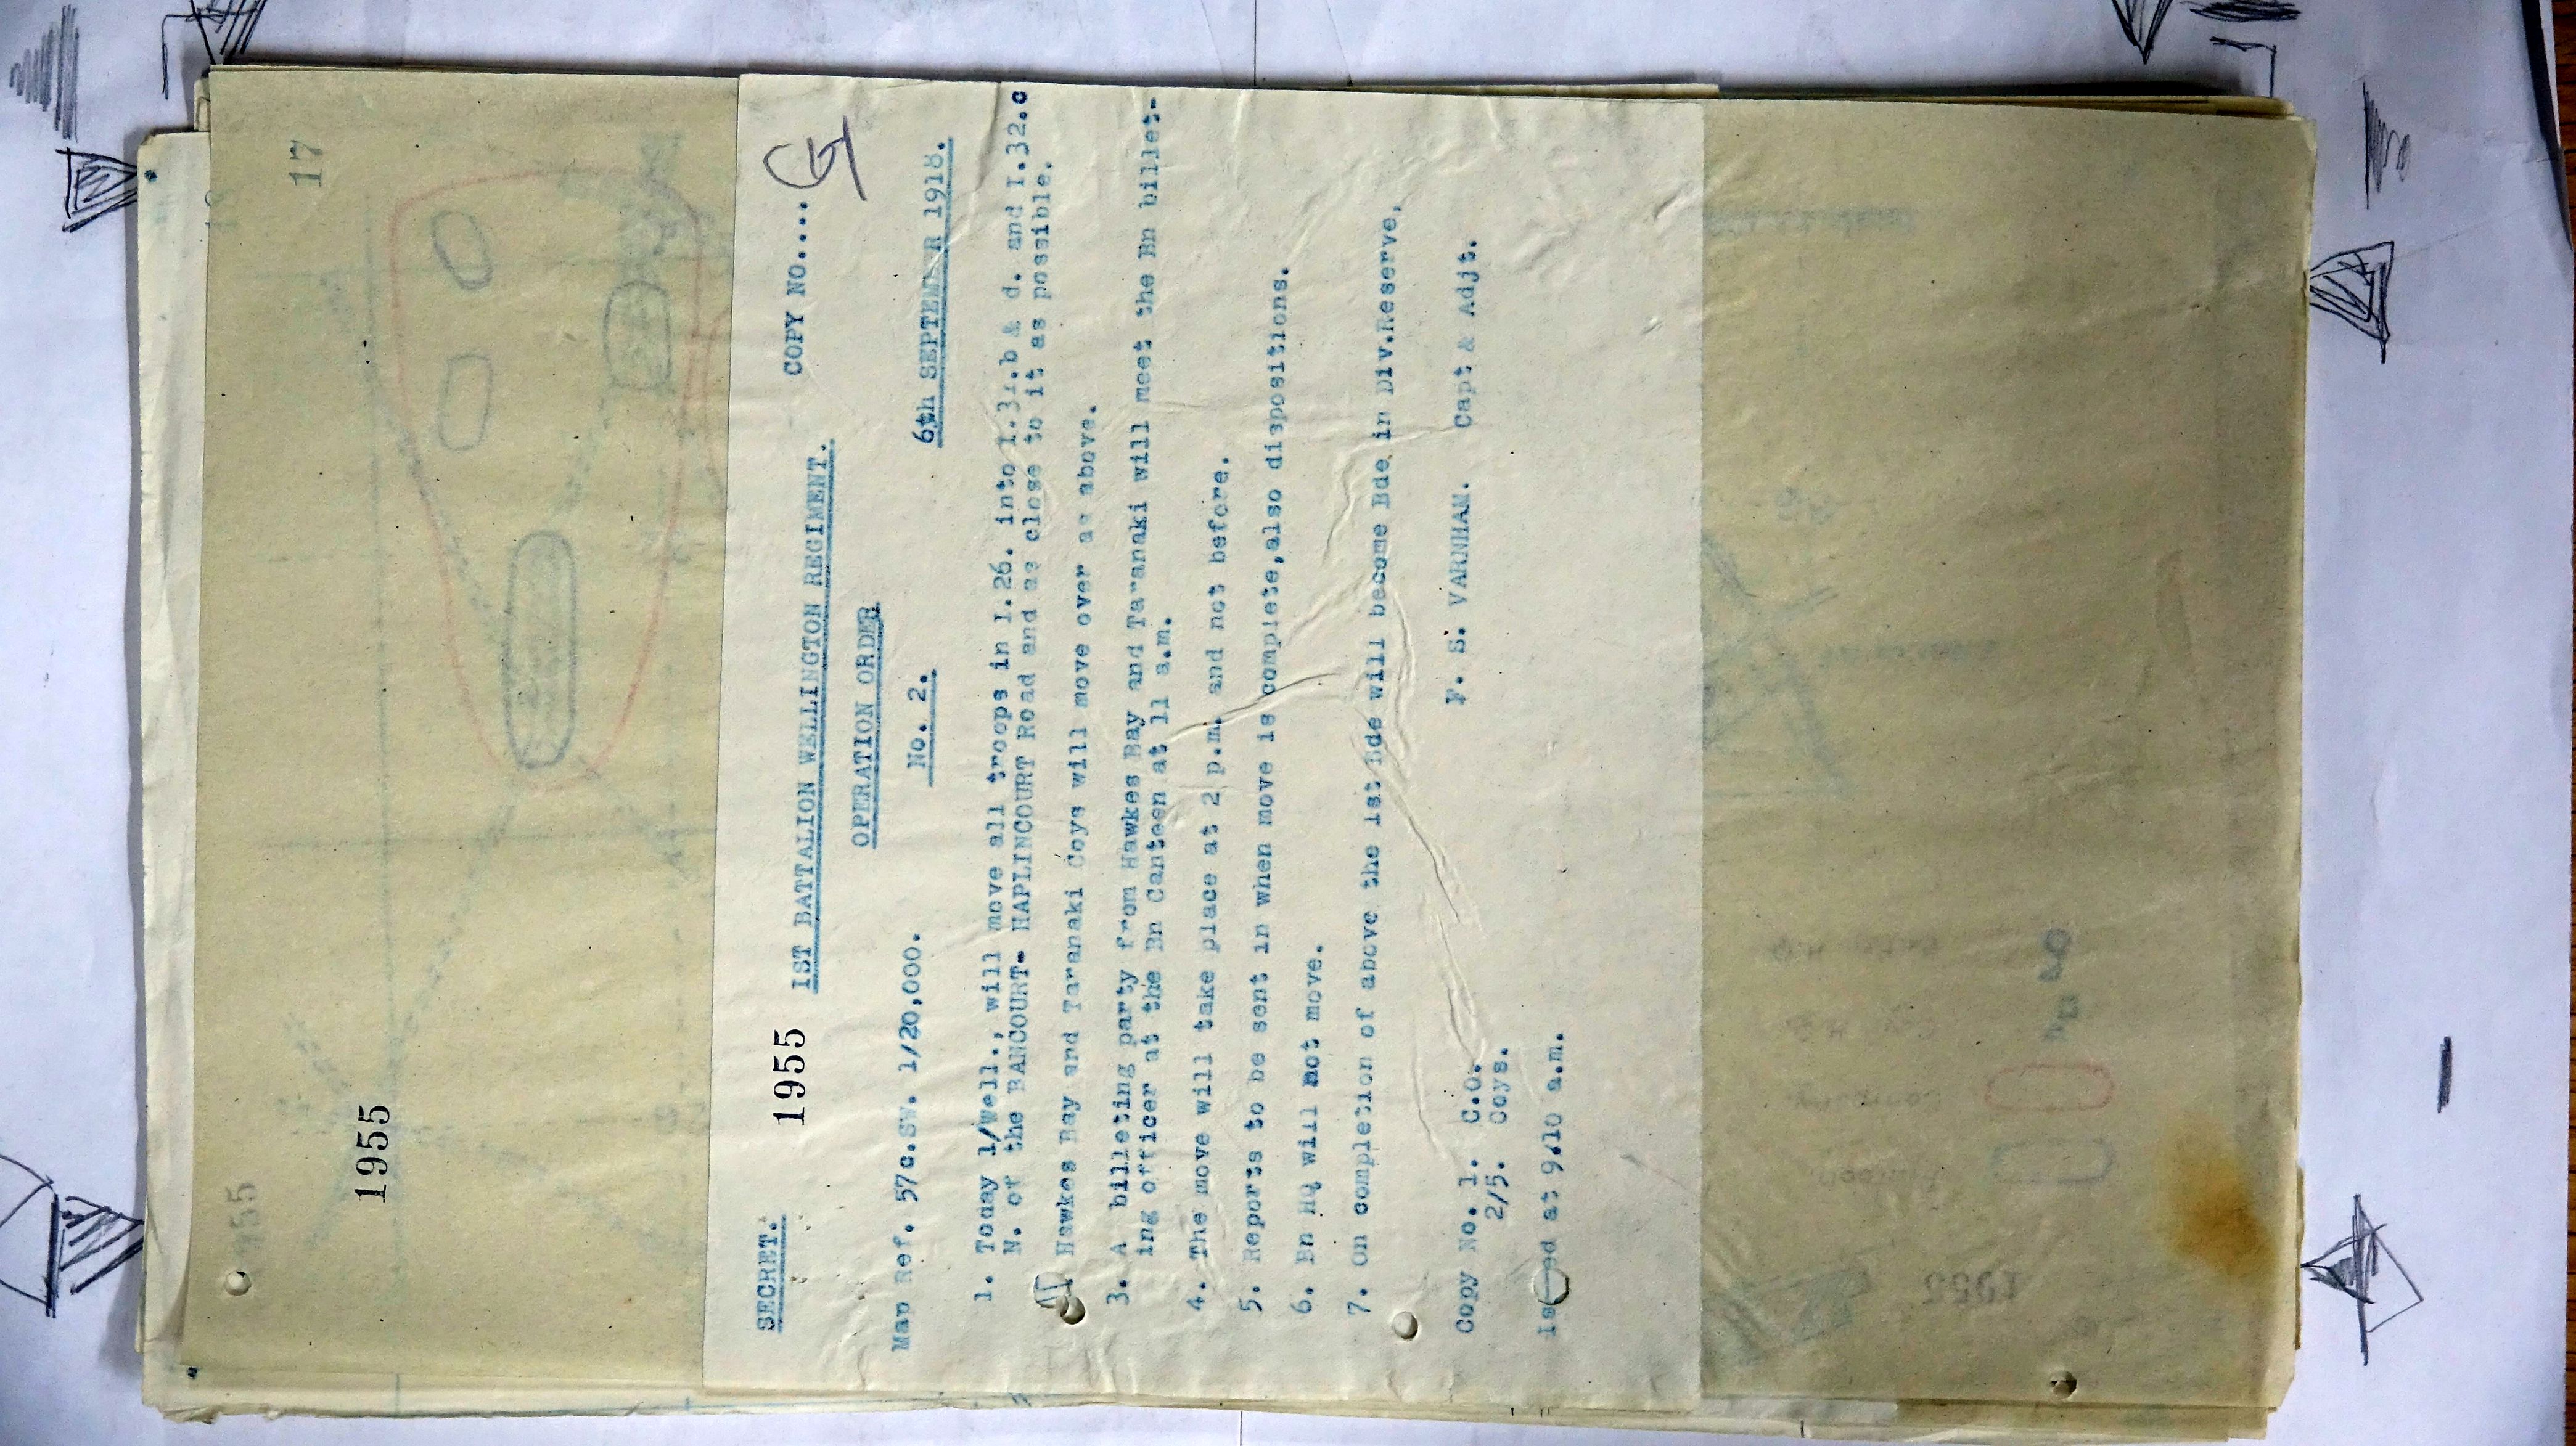 17
1955
SECRET.
1955 1ST BATTALION WELLINGTON REGIMENT. COPY NO....
OPERATION ORDER
Map Ref. 57c.SW. 1/20,000. No. 2. 6th SEPTEMBER 1918.
1. Today 1/Well., will move all troops in I.26. into I.31.b & d. and I.32.c
N. of the BANCOURT- HAPLINCOURT Road and as close to it as possible.
Hawkes Bay and Taranaki Coys will move over as above.
3. A billeting party from Hawkes Bay and Taranaki will meet the Bn billet-
ing officer at the Bn Canteen at 11 a.m.
4. The move will take place at 2 p.m. and not before.
5. Reports to be sent in when move is complete,also dispositions.
6. Bn HQ will not move.
7. On completion of above the 1st Bde will become Bde in Div.Reserve.
F. S. VARNHAM. Capt & Adjt.
Copy No. 1. C.O.
2/5. Coys.
Issued at 9.10 a.m.